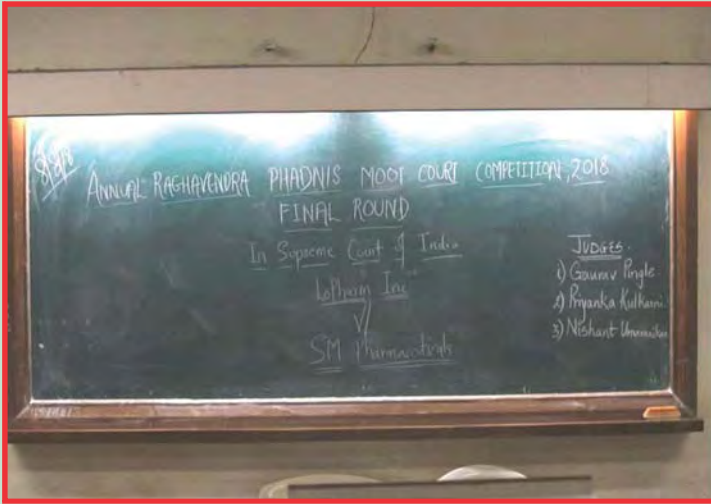 8/8/18
ANNUAL RAGHAVENDRA PHADNIS MOOT COURT COMPETITION, 2018
FINAL ROUND
In Supreme Court of India
LoPharm Inc
V
SM Pharmaceuticals
JUDGES.
1) Gaurav Pingle
2) Priyanka Kulkarni
3) Nishant